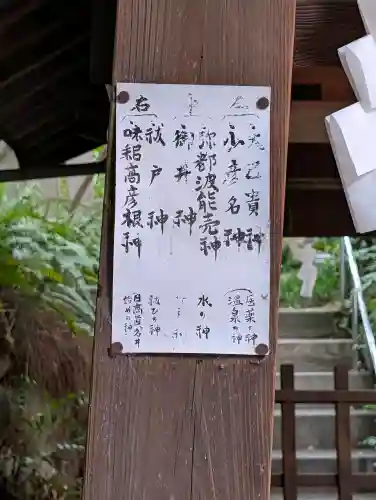 左
大己貴神
小彦名神
医薬の神
温泉の神
弥都波能売神
水の神
御井神
右
祓戸神
祓ひの神
味耜高彦根神